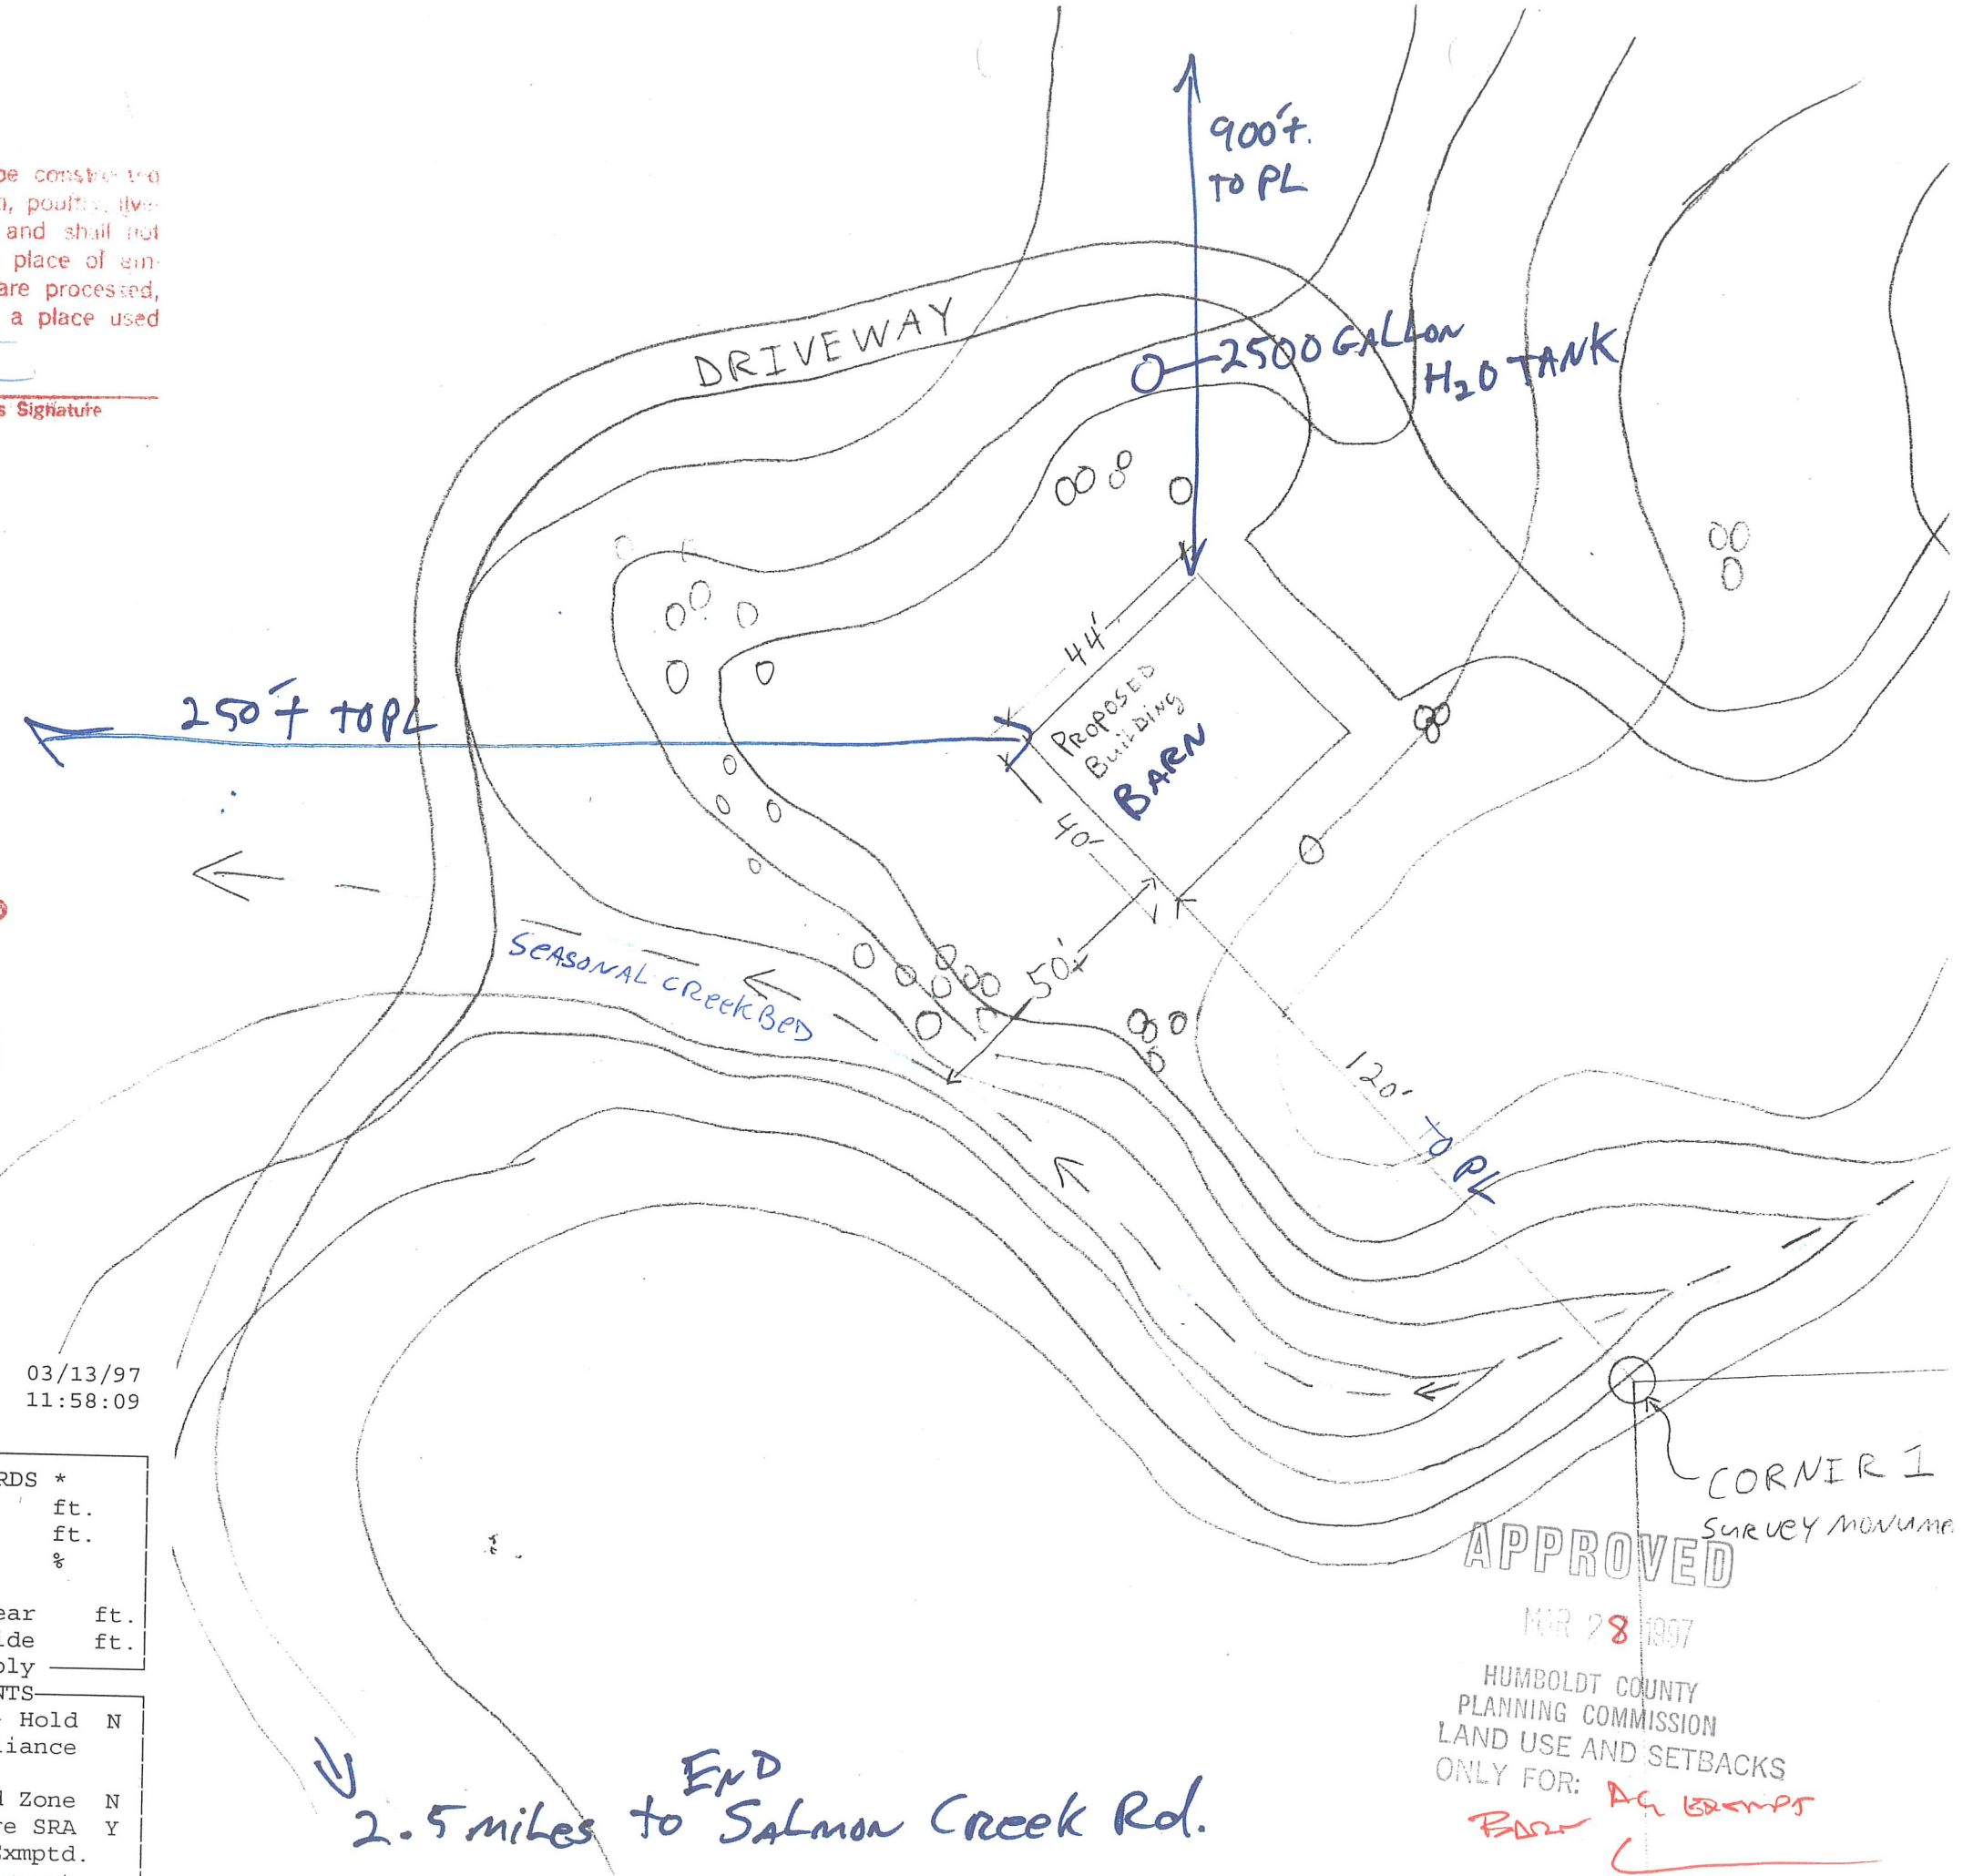 900'±
TO PL
be constructed
, poultry, live-
and shall not
place of em-
are processed,
a place used
s Signature
DRIVEWAY
2500 GALLON
H2O TANK
44'
250'± TO PL
PROPOSED
BuiLDing
BARN
40'
SEASONAL CReeK BeD
50'±
120' TO PL
03/13/97
11:58:09
RDS *
ft.
ft.
%
ear ft.
ide ft.
ply
NTS
Hold N
liance
d Zone N
re SRA Y
Exmptd.
CORNER 1
SURVEY MONUME
APPROVED
MAR 28 1997
HUMBOLDT COUNTY
PLANNING COMMISSION
LAND USE AND SETBACKS
ONLY FOR: AG EXEMPT
BARN
END
2.5 miLes to SALMON CReek Rd.